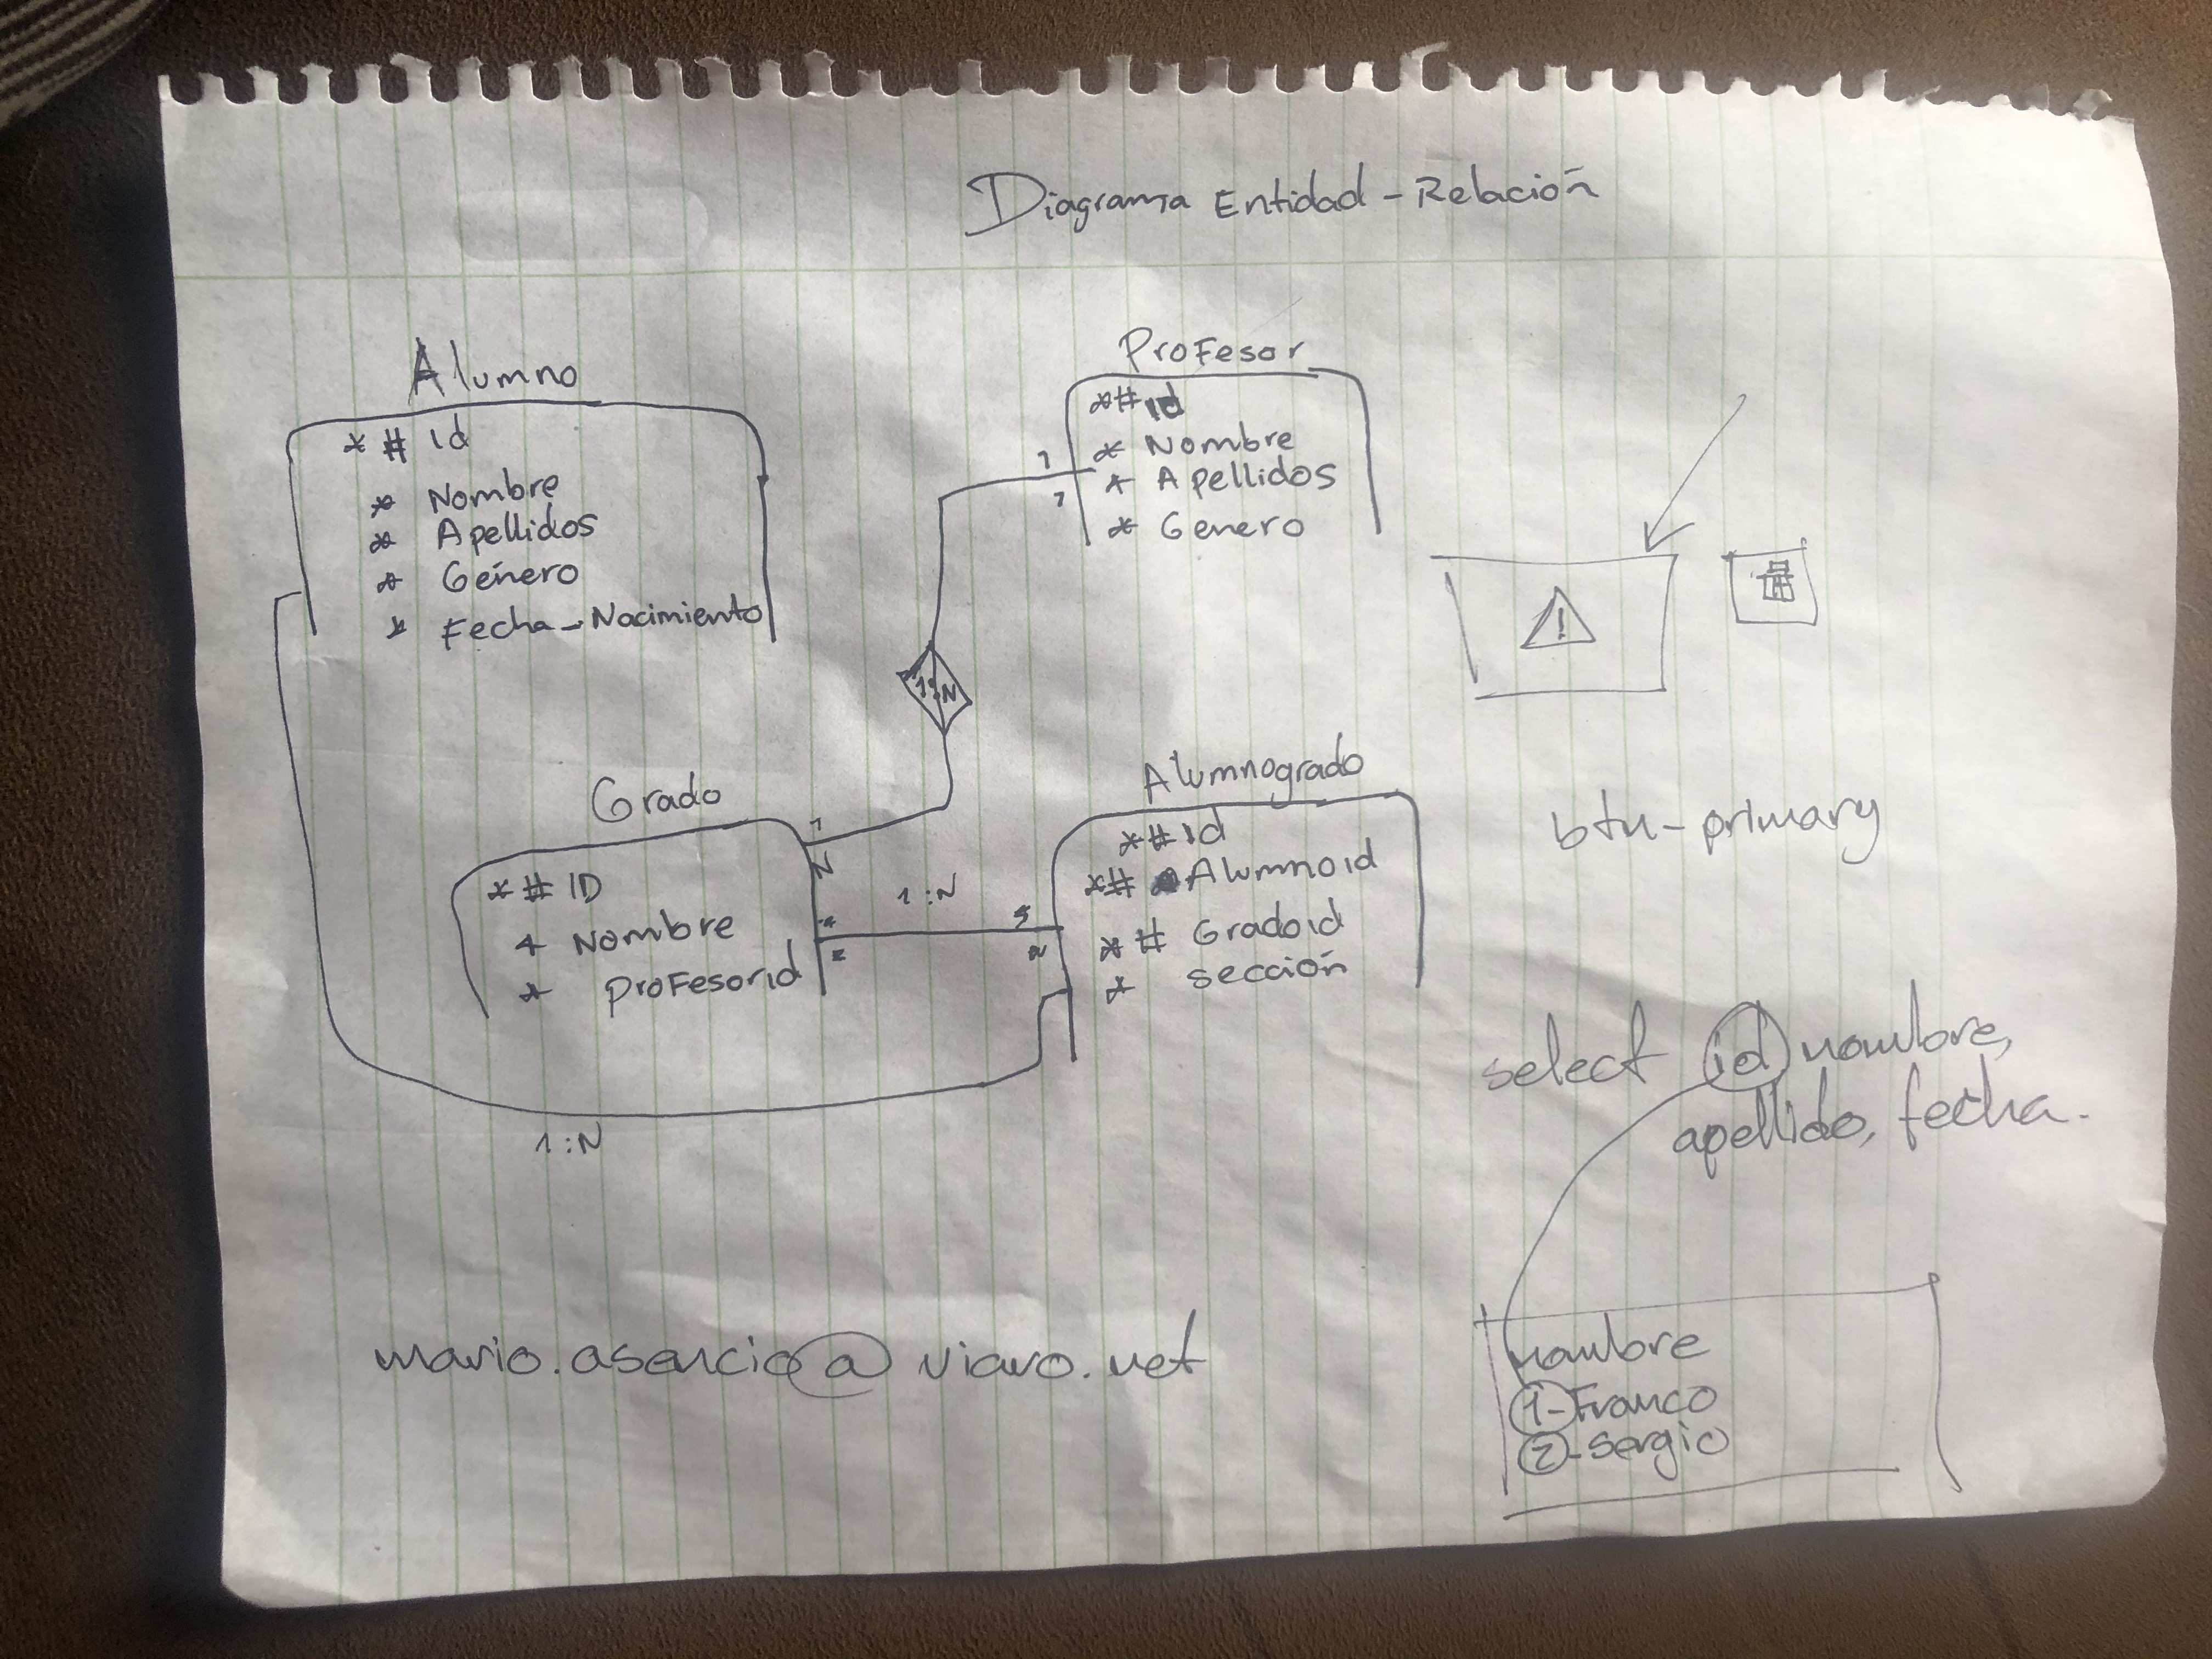 Diagrama Entidad - Relación
Alumno
* # Id
* Nombre
* Apellidos
* Género
* Fecha - Nacimiento
Profesor
* # id
* Nombre
* Apellidos
* Genero
1
1
1:N
1
N
Grado
* # ID
* Nombre
* profesorid
1:N
N
Alumnogrado
* # id
* # Alumnoid
* # Gradoid
* sección
1:N
!
btn-primary
select id nombre,
apellido, fecha.
nombre
1- Franco
2. sergio
mario.asencio@viaro.net